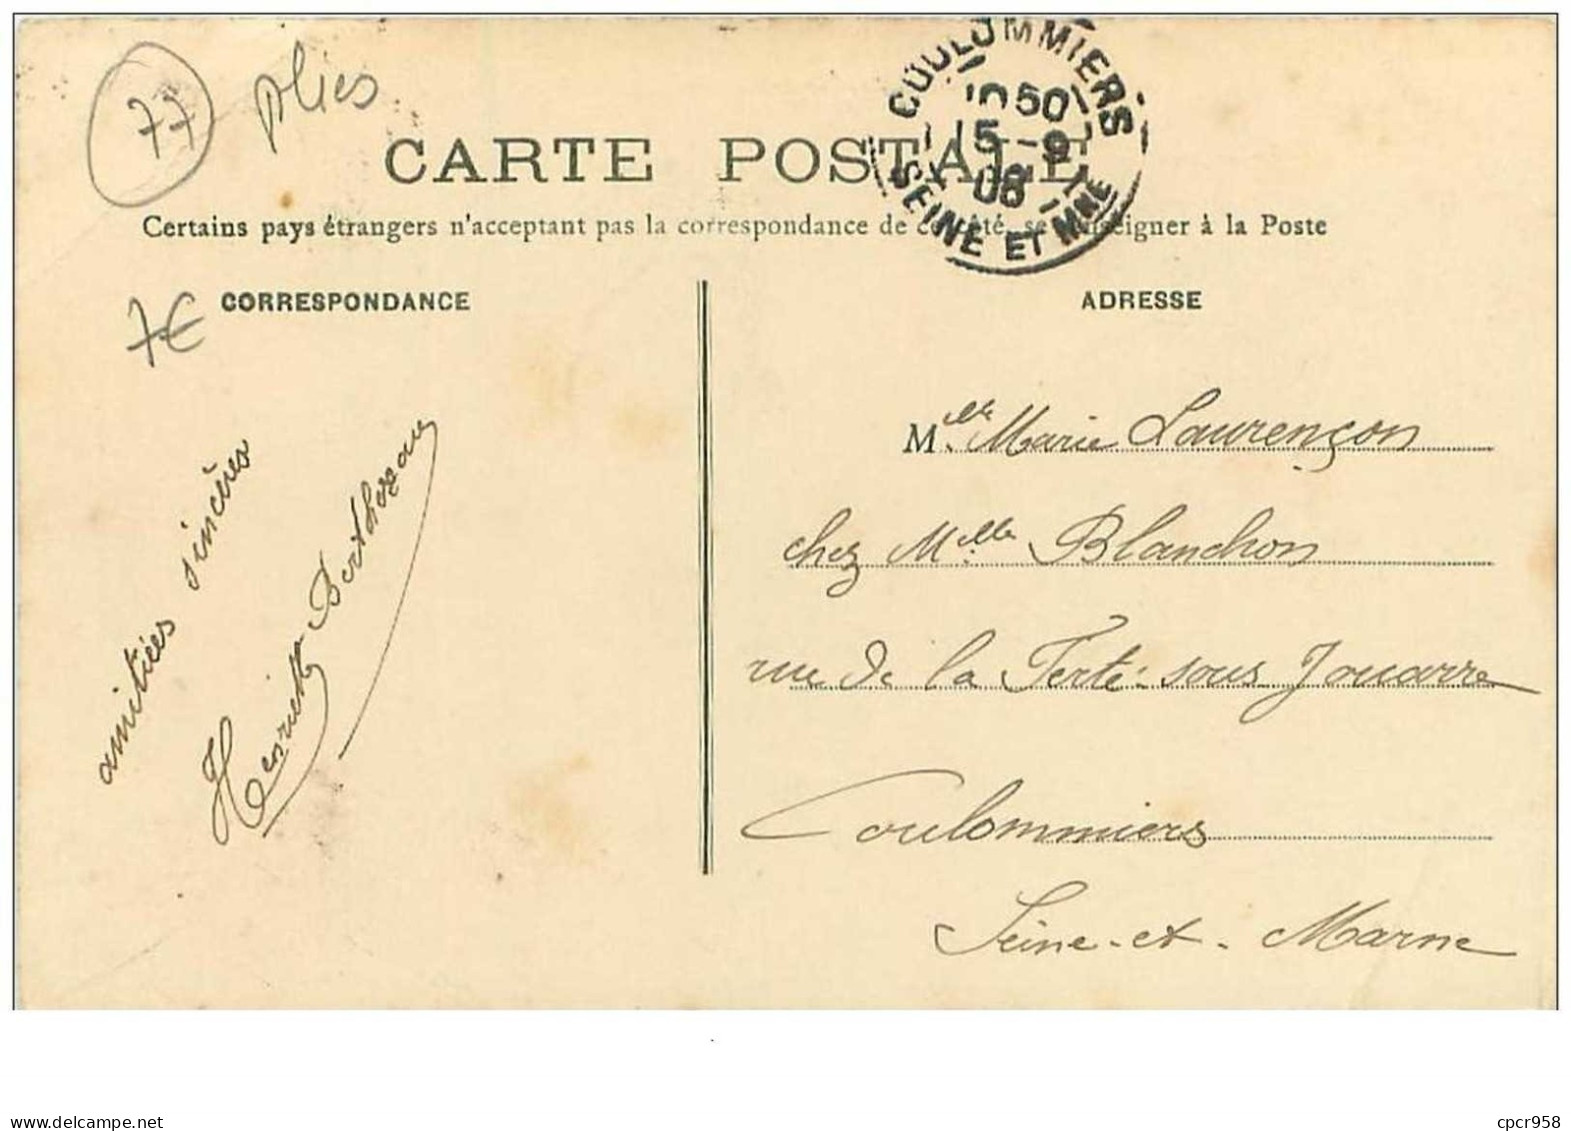 77
plies
COULOMMIERS
10 50
15 - 9
08
SEINE ET MNE
CARTE POSTALE
Certains pays étrangers n'acceptant pas la correspondance de ce côté, se renseigner à la Poste
7€
CORRESPONDANCE
ADRESSE
amitiées sincères
Henriette
Melle Marie Laurençon
chez Melle Blanchon
rue de la Ferté-sous Jouarre
Coulommiers
Seine-et-Marne
www.delcampe.net
cpcr958